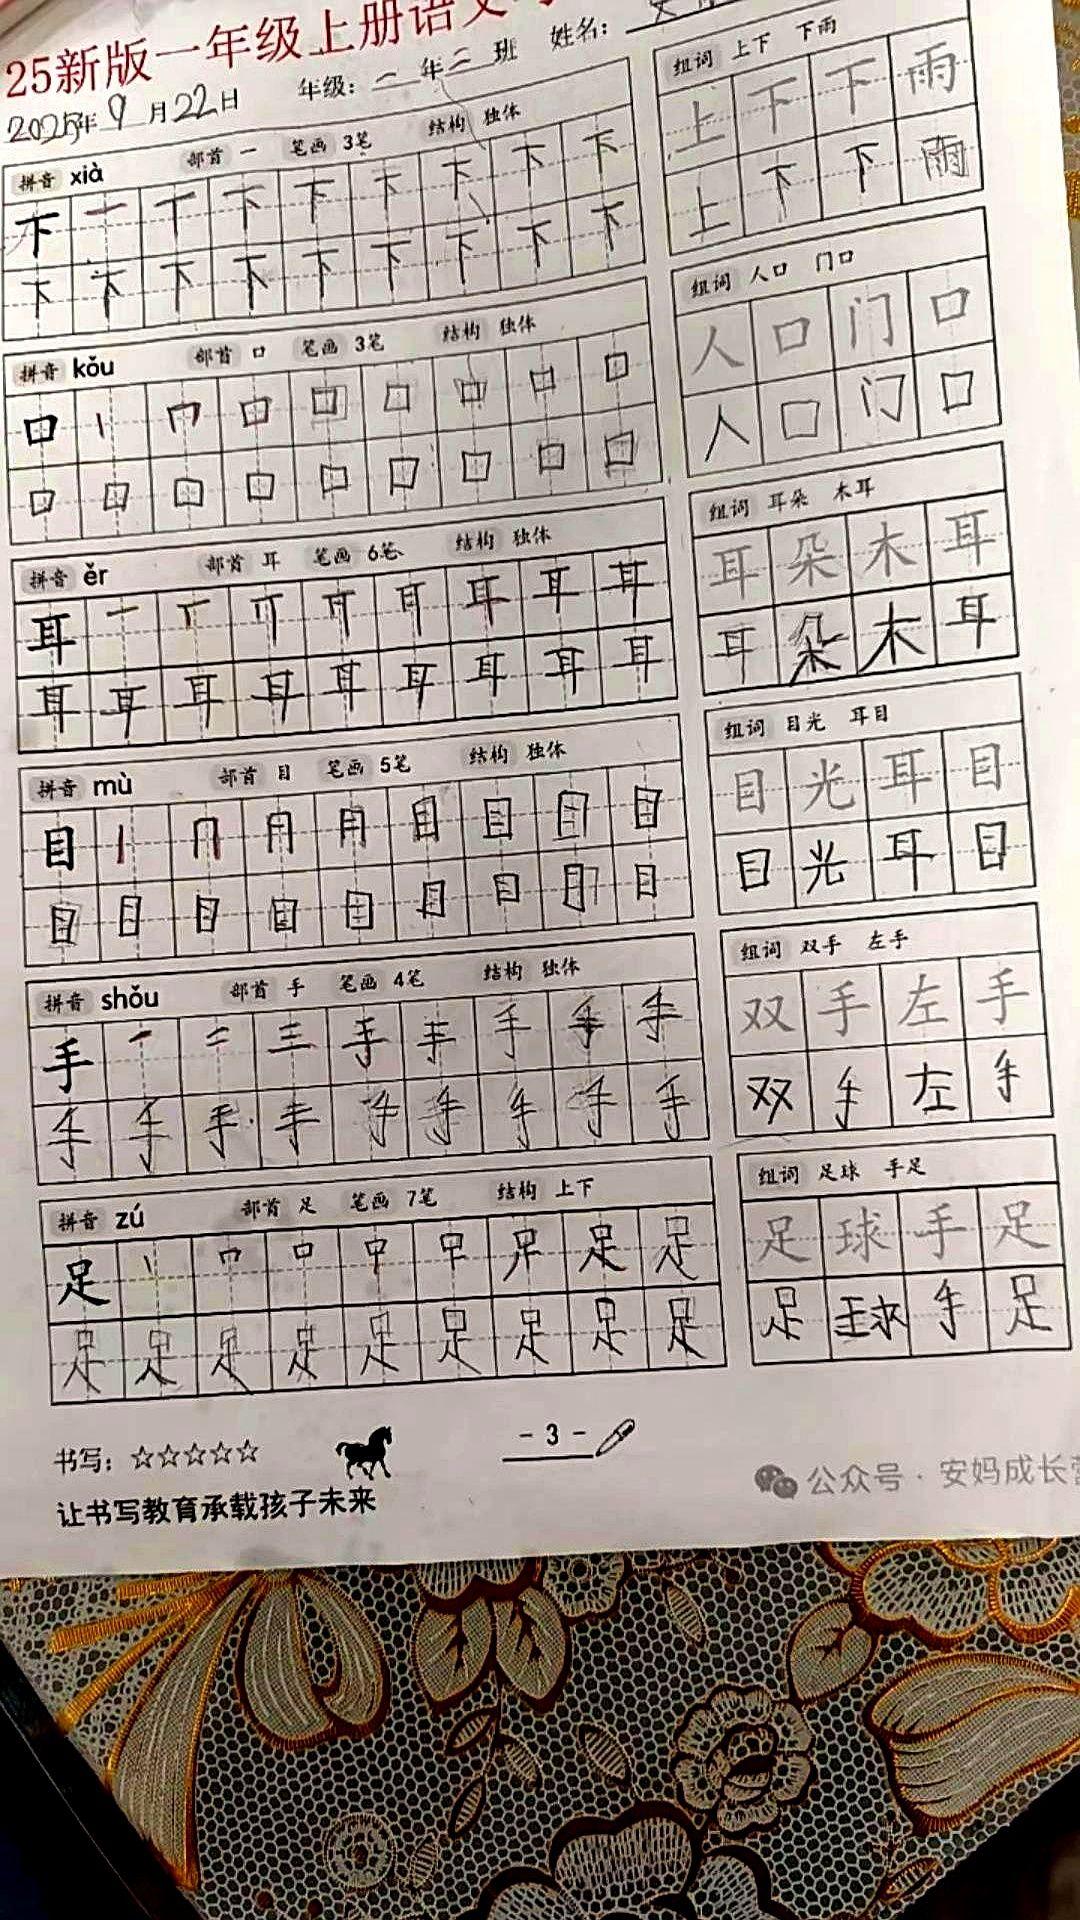 25新版一年级上册语文
2025年 9 月 22日 年级: 一 年二 班 姓名:
拼音 xià 部首 一 笔画 3笔 结构 独体
下 一 丅 下 下 下 下 下 下
下 下 下 下 下 下 下 下 下
组词 上下 下雨
上 下 下 雨
上 下 下 雨
拼音 kǒu 部首 口 笔画 3笔 结构 独体
口 丨 冂 口 口 口 口 口 口
口 口 口 口 口 口 口 口 口
组词 人口 门口
人 口 门 口
人 口 门 口
拼音 ěr 部首 耳 笔画 6笔 结构 独体
耳 一 丅 耳 耳
耳 耳 耳 耳 耳 耳 耳 耳 耳
组词 耳朵 木耳
耳 朵 木 耳
耳 朵 木 耳
拼音 mù 部首 目 笔画 5笔 结构 独体
目 丨 冂 月 月 目 目 目 目
目 目 目 目 目 目 目 目 目
组词 目光 耳目
目 光 耳 目
目 光 耳 目
拼音 shǒu 部首 手 笔画 4笔 结构 独体
手 一 二 三 手 手 手 手 手
手 手 手 手 手 手 手 手 手
组词 双手 左手
双 手 左 手
双 手 左 手
拼音 zú 部首 足 笔画 7笔 结构 上下
足 丨 冂 口 足 足
足 足 足 足 足 足 足 足 足
组词 足球 手足
足 球 手 足
足 球 手 足
书写: ☆☆☆☆☆
- 3 -
让书写教育承载孩子未来
公众号 · 安妈成长营